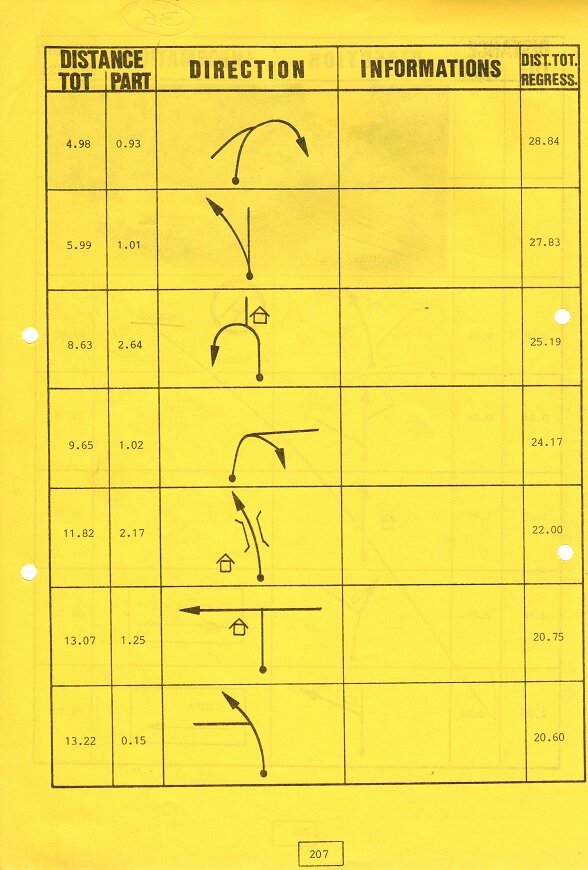 DISTANCE DIRECTION INFORMATIONS DIST.TOT.
TOT PART REGRESS.
4.98 0.93 28.84
5.99 1.01 27.83
8.63 2.64 25.19
9.65 1.02 24.17
11.82 2.17 22.00
13.07 1.25 20.75
13.22 0.15 20.60
207